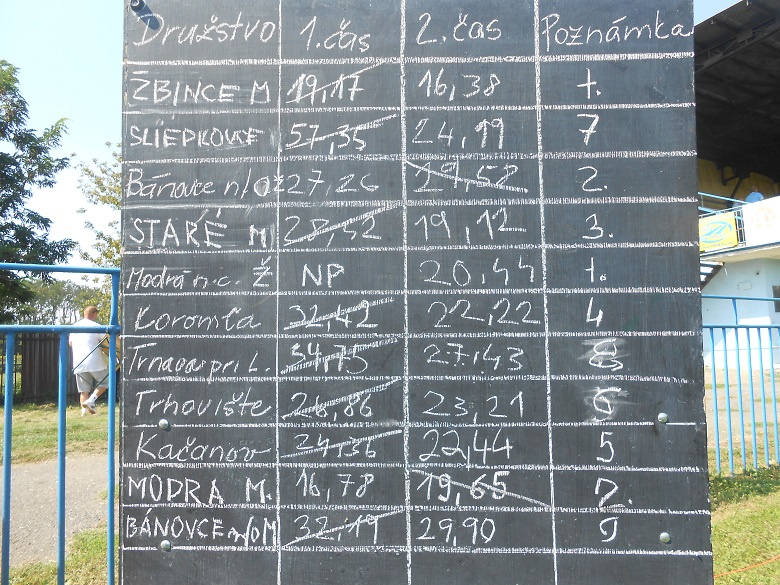 Družstvo 1.čas 2.čas Poznámka
ŽBINCE M 19,17 16,38 1.
SLIEPKOVCE 57,35 24,19 7
Bánovce n/O Ž 27,26 29,58 2.
STARÉ M 28,52 19,12 3.
Modrá n.c. Ž NP 20,44 1.
Koromľa 32,42 22,22 4
Trnava pri L. 27,43 8
Trhovište 26,86 23,21 6
Kačanov 24,36 22,44 5
MODRA M. 16,78 19,65 2.
BÁNOVCE n/O M 32,19 29,90 9